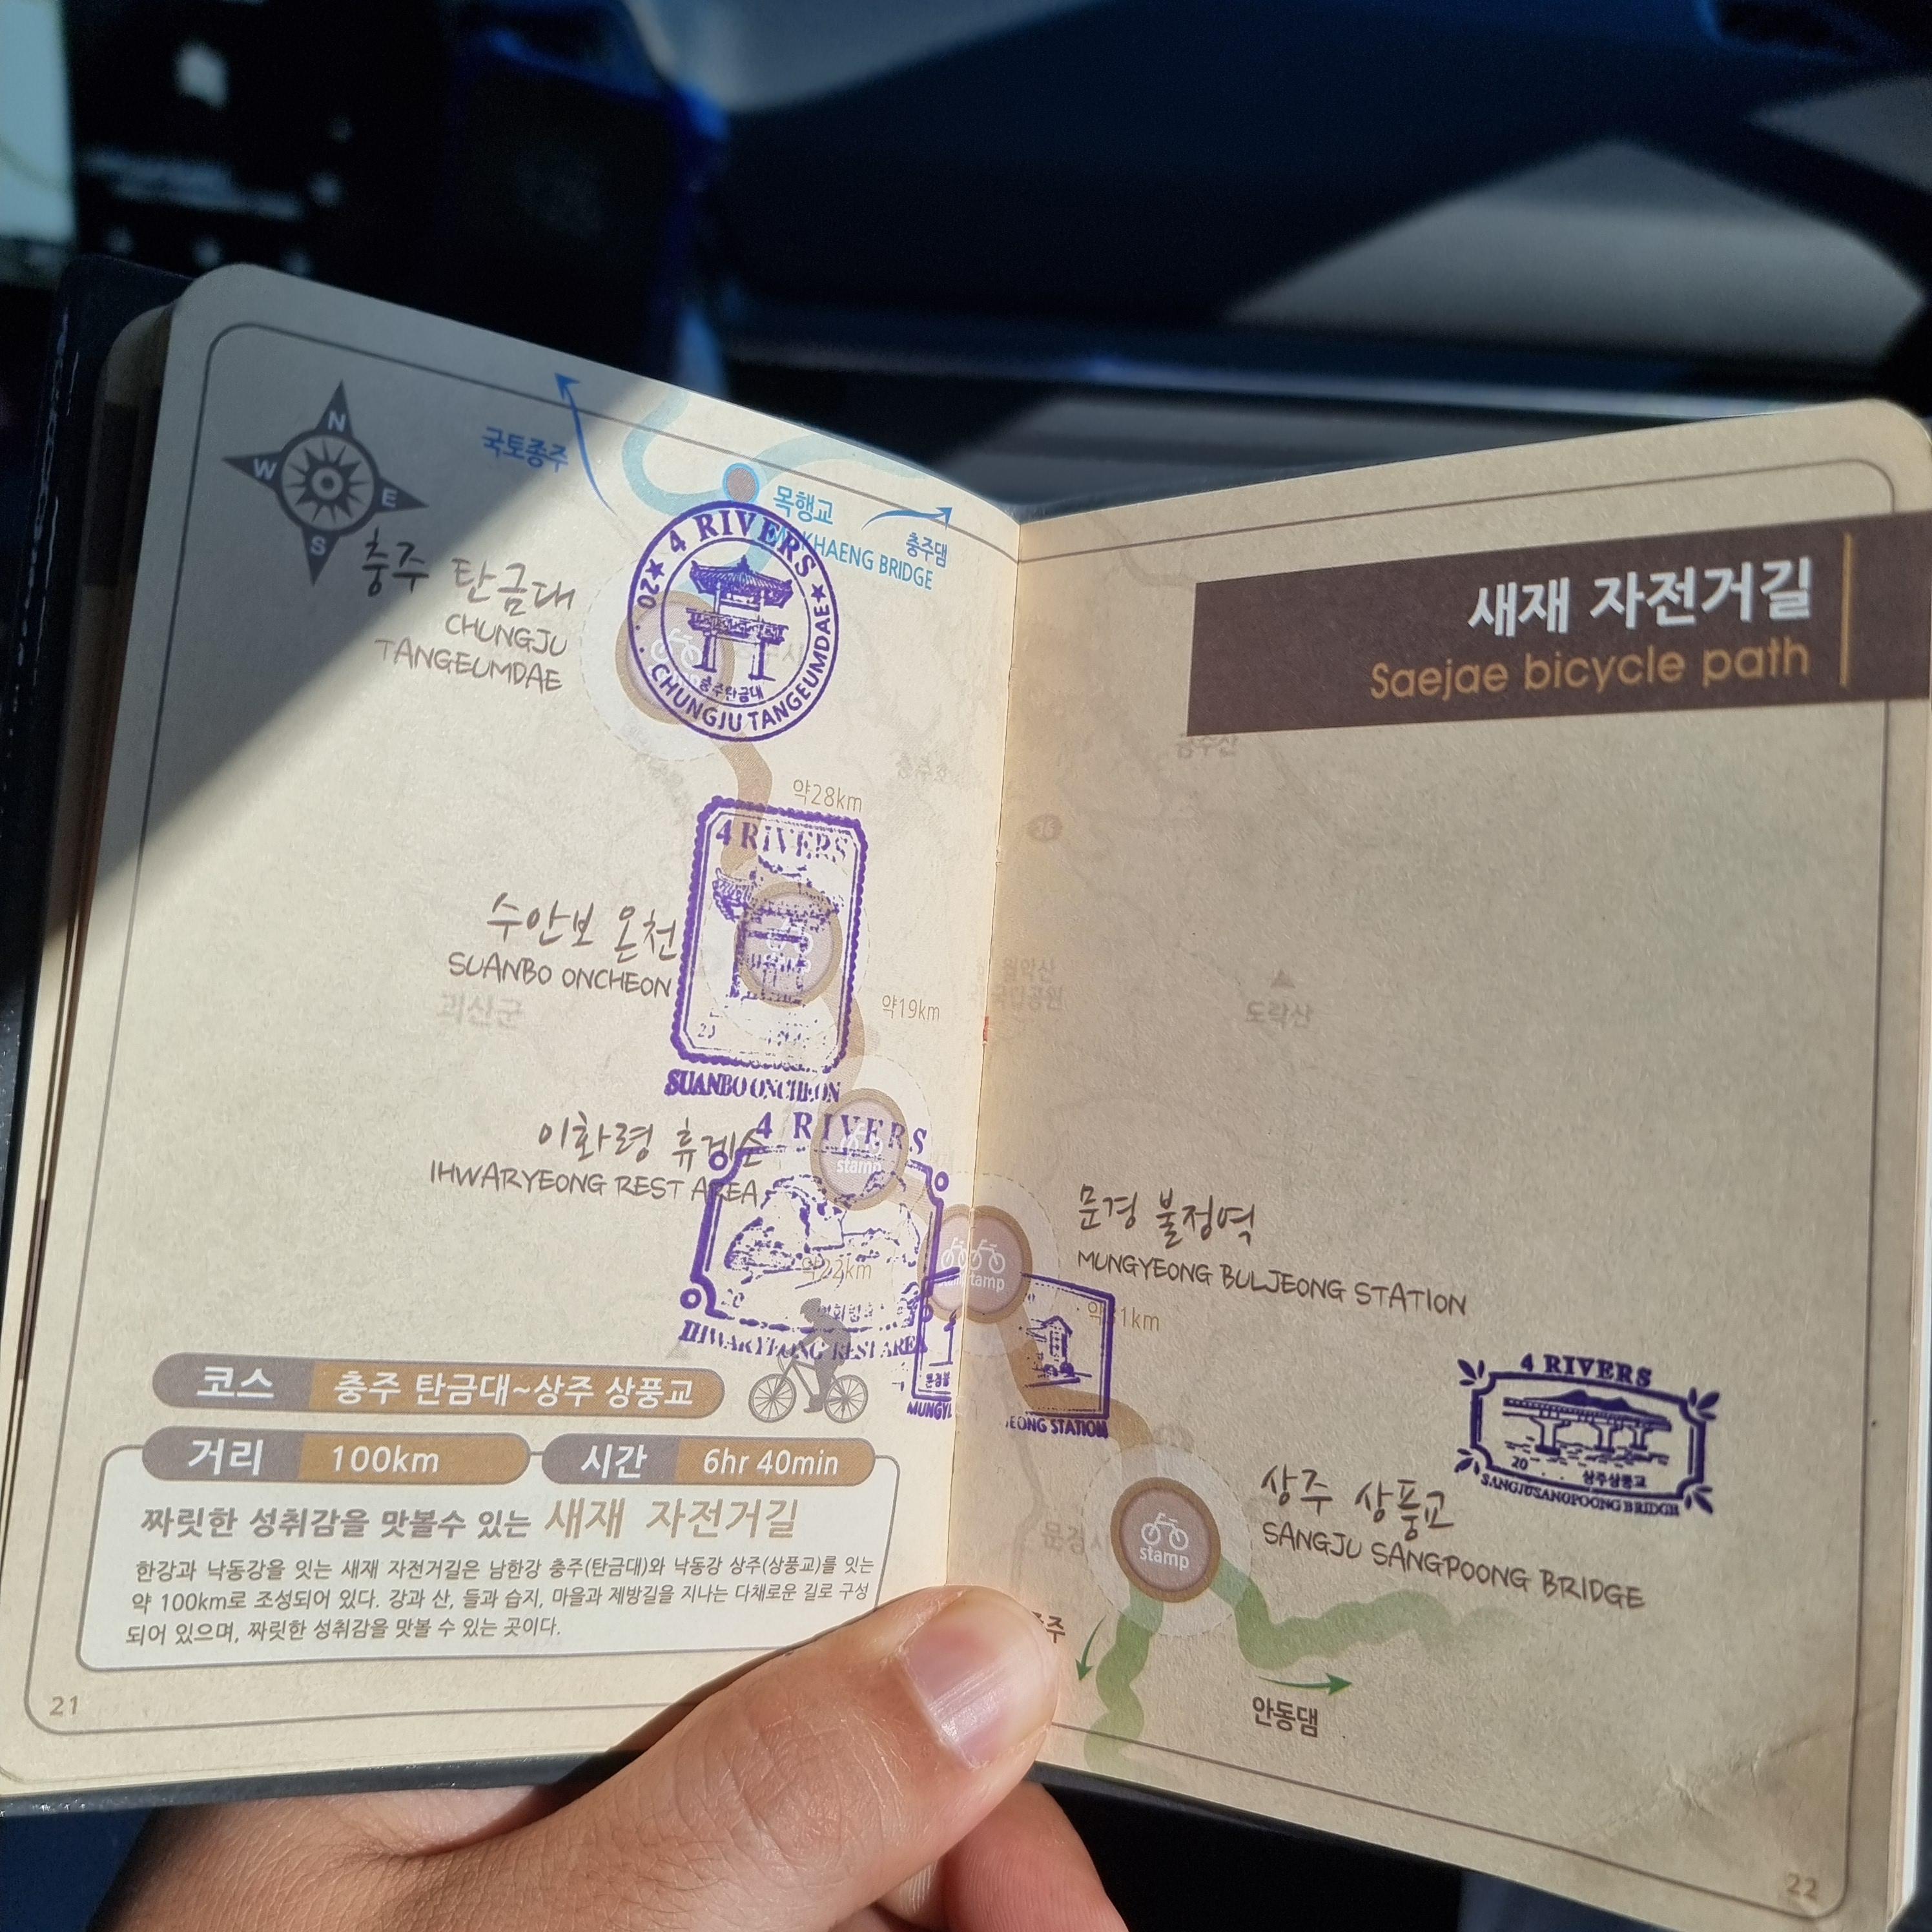 N
W
E
S
국토종주
목행교
KHAENG BRIDGE
충주댐
충주 탄금대
CHUNGJU
TANGEUMDAE
4 RIVERS
20
충주탄금대
CHUNGJU TANGEUMDAE
약28km
4 RIVERS
수안보 온천
SUANBO ONCHEON
SUANBO ONCHEON
괴산군
약19km
이화령 휴게소
IHWARYEONG REST AREA
4 RIVERS
stamp
약22km
20
IHWARYEONG REST AREA
코스
충주 탄금대~상주 상풍교
거리
100km
시간
6hr 40min
짜릿한 성취감을 맛볼수 있는 새재 자전거길
한강과 낙동강을 잇는 새재 자전거길은 남한강 충주(탄금대)와 낙동강 상주(상풍교)를 잇는
약 100km로 조성되어 있다. 강과 산, 들과 습지, 마을과 제방길을 지나는 다채로운 길로 구성
되어 있으며, 짜릿한 성취감을 맛볼 수 있는 곳이다.
21
새재 자전거길
Saejae bicycle path
금수산
월악산
국립공원
도락산
문경 불정역
MUNGYEONG BULJEONG STATION
stamp
MUNGY
EONG STATION
4 RIVERS
20
상주상풍교
SANGJUSANGPOONG BRIDGE
상주 상풍교
SANGJU SANGPOONG BRIDGE
stamp
문경시
안동댐
22